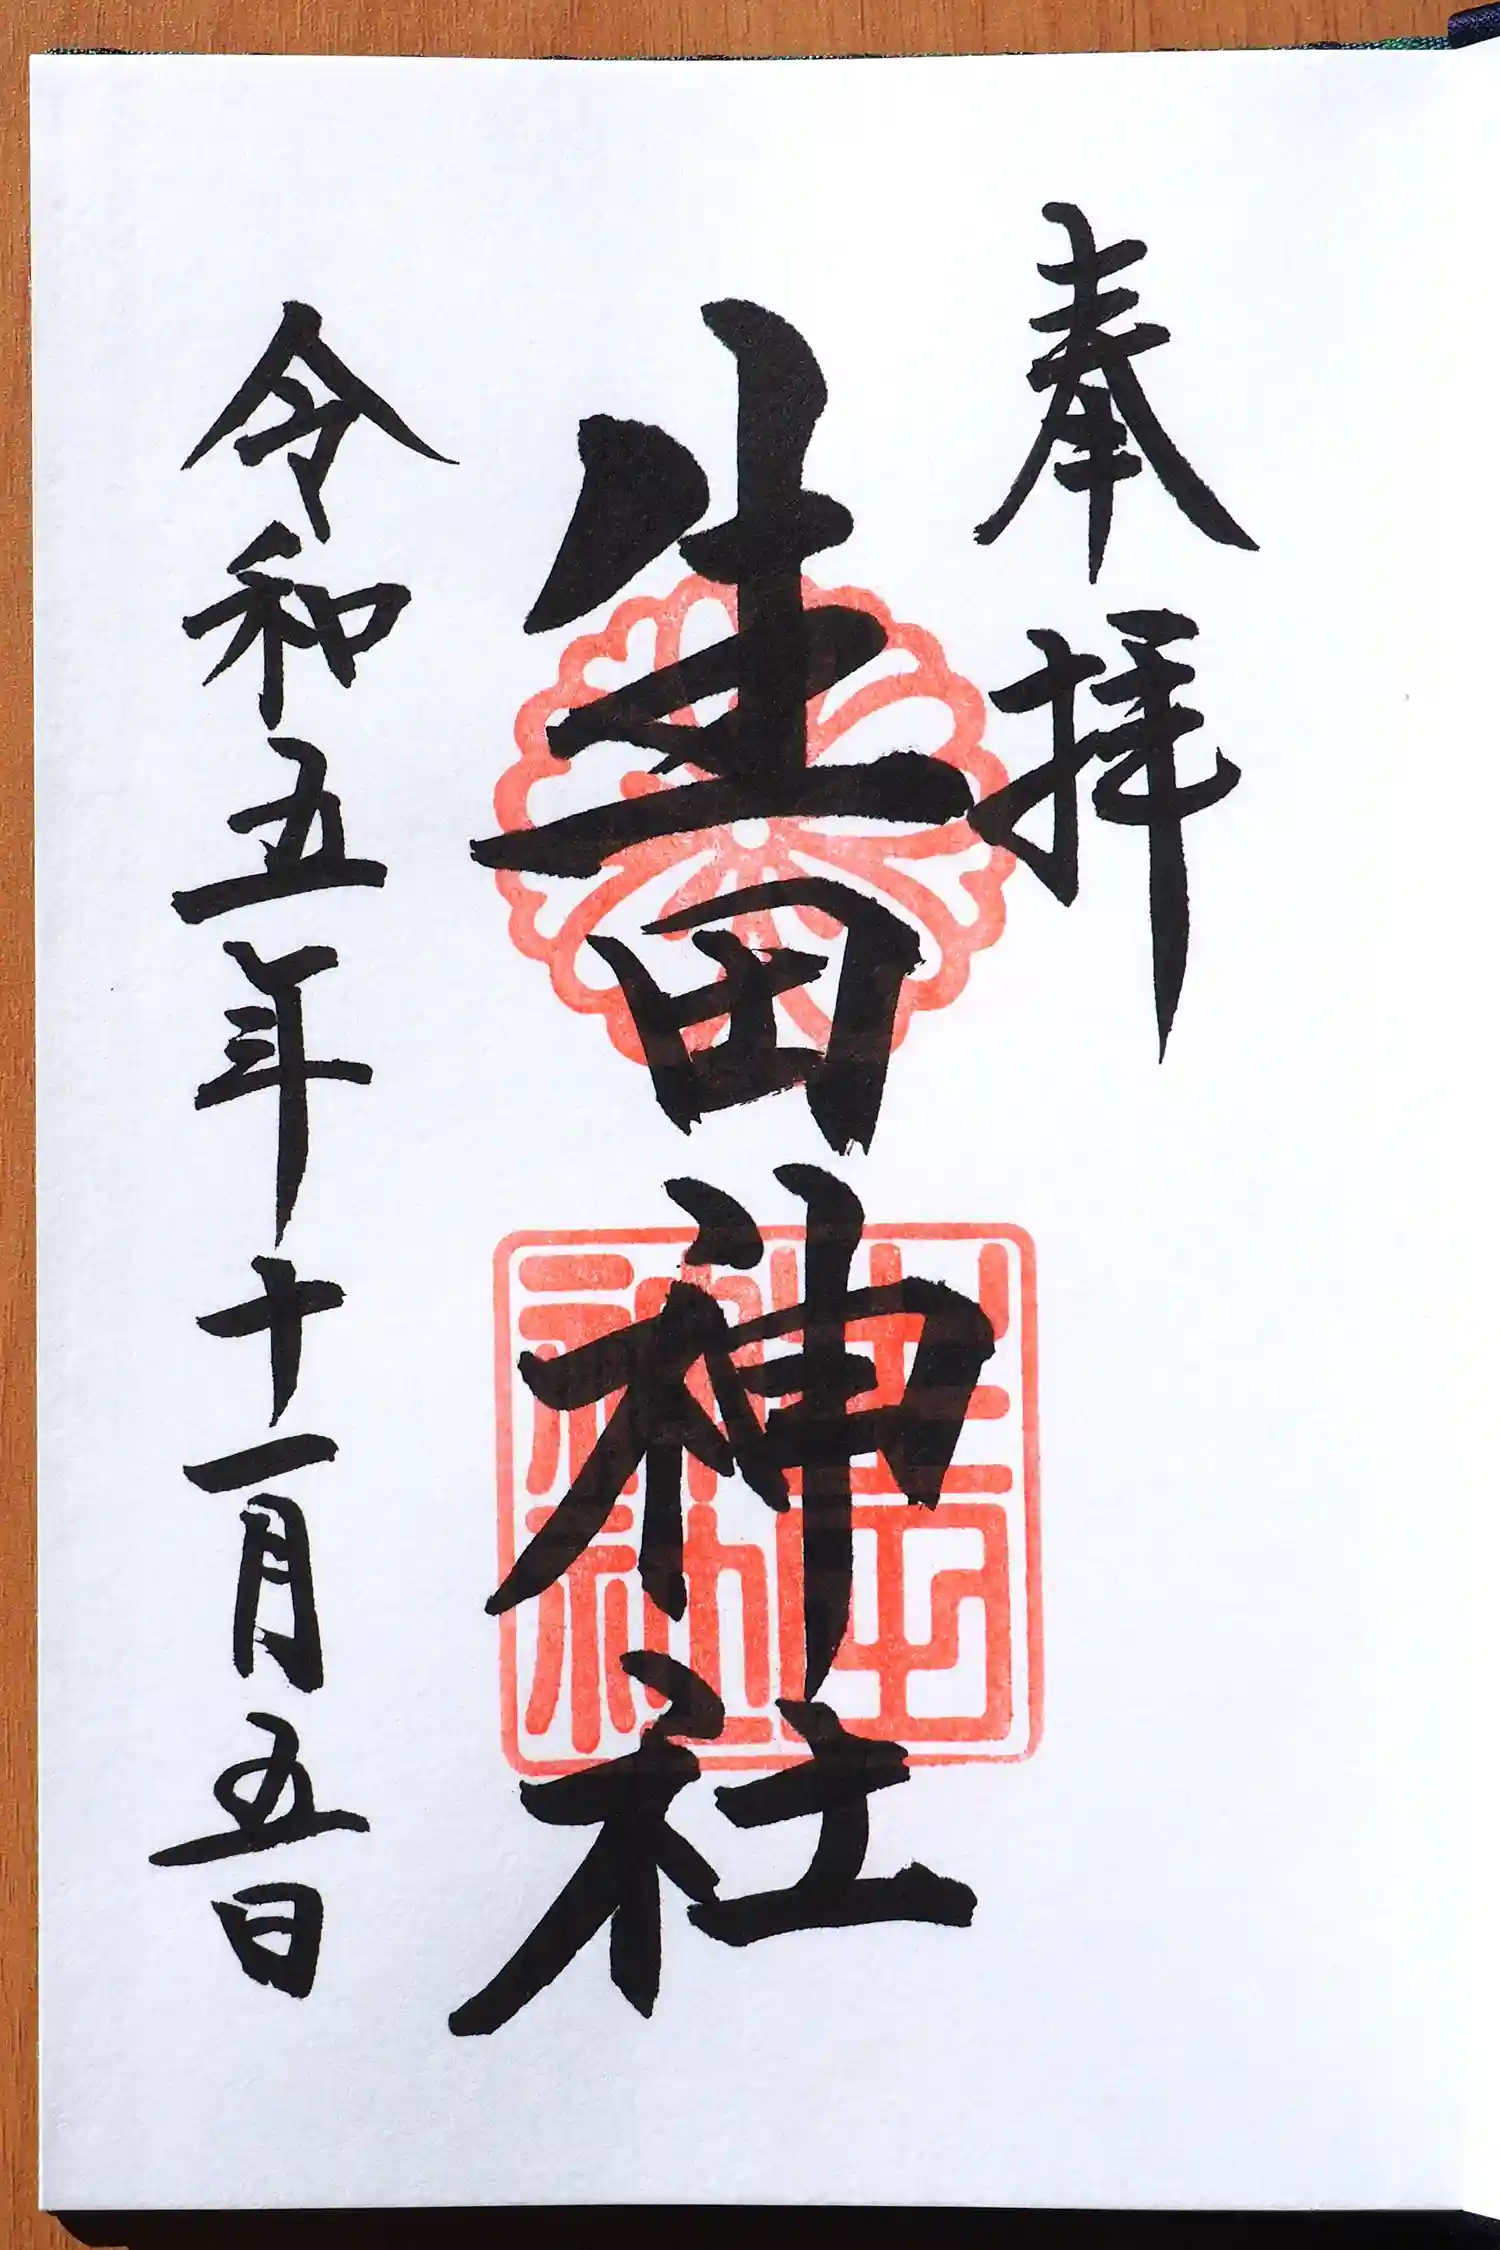 奉拝
生田神社
令和五年十一月五日
生田
神社